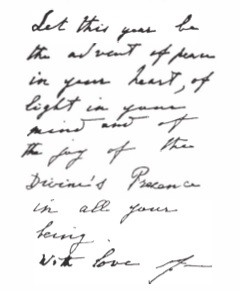 Let this year be
the advent of peace
in your heart, of
light in your
mind and of
the joy of the
Divine's Presence
in all your
being.
With love